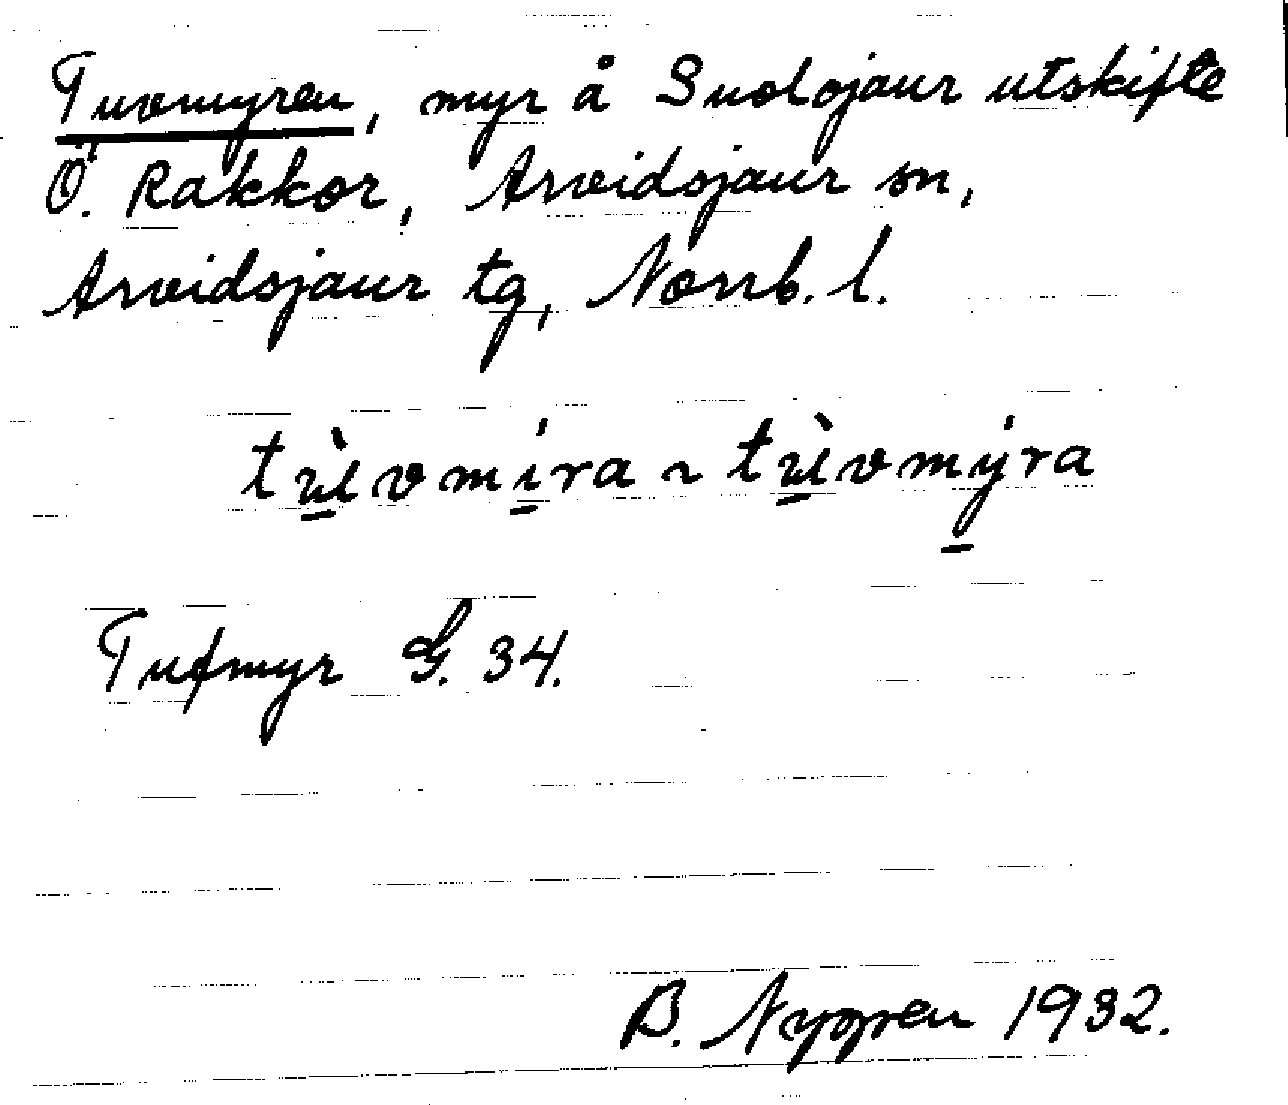 Tuvmyren, myr å Suolojaur utskifte
Ö. Rakkor, Arvidsjaur sn,
Arvidsjaur tg, Norrb. l.
tù̱vmí̱ra ~ tù̱vmý̱ra
Tufmyr G. 34.
B. Nygren 1932.